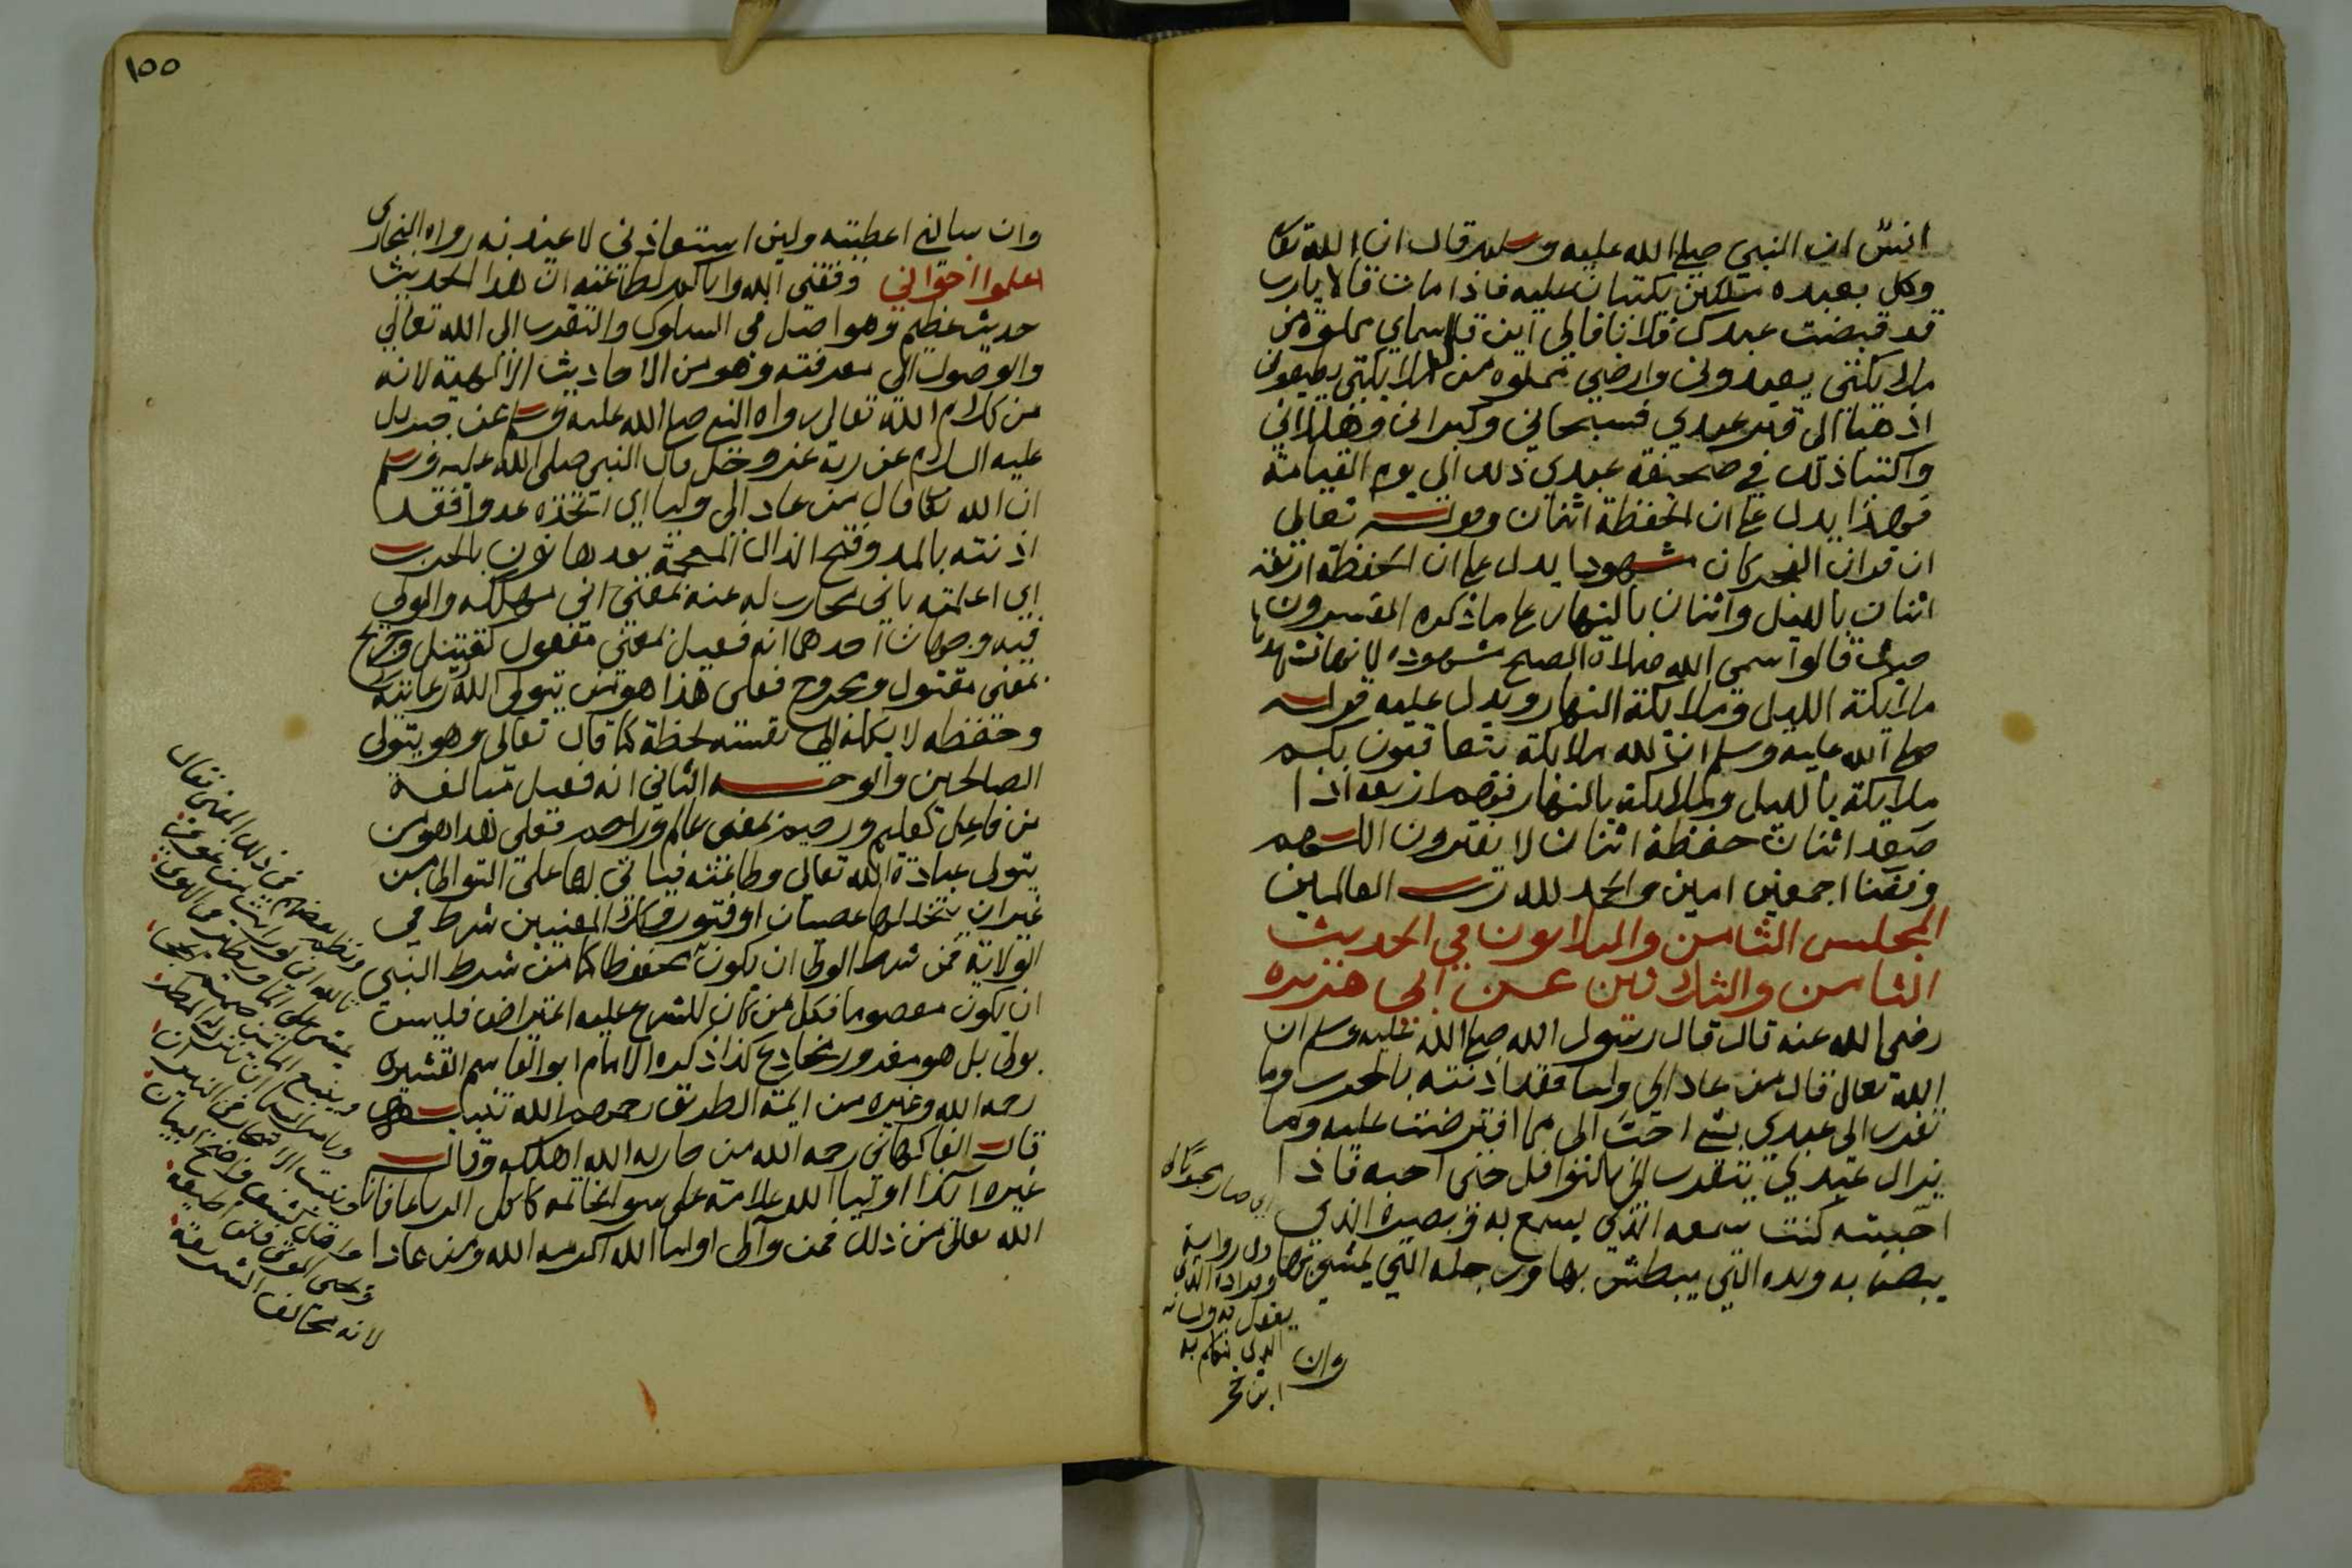 انس ان النبي صلى الله عليه وسلم قال ان الله تعا
وكل بعبده ملكين يكتبان عليه فاذا مات قالا يارب
قد قبضت عبدك فلانا فالى اين قال سماي مملوة من
ملايكتي يعبدوني وارضي مملوه من ملايكتي يطيعوني
اذهبا الى قبر عبدي فسبحاني وكبراني وهللاني
واكتبا ذلك في صحيفة عبدي ذلك الى يوم القيامة
فهذا يدل على ان الحفظة اثنان وقوله تعالى
ان قران الفجر كان مشهودا يدل على ان الحفظة اربعه
اثنان بالليل واثنان بالنهار على ما ذكره المفسرون
حيث قالوا سمى الله صلاة الصبح مشهوده لانها تشهدها
ملايكة الليل وملايكة النهار ويدل عليه قوله
صلى الله عليه وسلم ان لله ملايكة يتعاقبون بكم
ملايكة بالليل وملايكة بالنهار فهم اربعه اذا
صعد اثنان حفظة اثنان لا يفترون اللهم
وفقنا اجمعين امين والحمد لله رب العالمين
المجلس الثامن والثلاثون في الحديث
الثامن والثلاثين عن ابي هريره
رضي الله عنه قال قال رسول الله صلى الله عليه وسلم ان
الله تعالى قال من عاد الى وليا فقد اذنته بالحرب وما
تقرب الى عبدي بشي احب الى مما افترضت عليه وما
يزال عبدي يتقرب الي بالنوافل حتى احبه فاذا
احببته كنت سمعه الذي يسمع به وبصره الذي
يبصر به ويده التي يبطش بها ورجله التي يمشي بها
وان
اي صار
وفي رواية
وفؤاده الذي
يعقل به ولسانه
الذي يتكلم به
ابن حجر
١٥٥
وان سالني اعطيته ولين استعاذني لاعيذنه رواه البخاري
اعلموا اخواني وفقني الله واياكم لطاعته ان هذا الحديث
حديث عظيم وهو اصل في السلوك والتقرب الى الله تعالى
والوصول الى معرفته وهو من الاحاديث الالهية لانه
من كلام الله تعالى رواه النبي صلى الله عليه وسلم عن جبريل
عليه السلام عن ربه عز وجل قال النبي صلى الله عليه وسلم
ان الله تعا قال من عاد الى وليا اي اتخذه عدوا فقد
اذنته بالمد وفتح الذال المعجمة بعدها نون بالحرب
اي اعلمته باني محارب له عنه بمعنى اني مهلكه والولي
فيه وجهان احدهما انه فعيل بمعنى مفعول كقتيل وجريح
بمعنى مقتول ومجروح فعلى هذا هو من يتولى الله رعايته
وحفظه لا يكله الى نفسه لحظة كما قال تعالى وهو يتولى
الصالحين والوجه الثاني انه فعيل مبالغة
من فاعل كعليم ورحيم بمعنى عالم وراحم فعلى هذا هو من
يتولى عبادة الله تعالى وطاعته فياتي بها على التوالي من
غير ان يتخللها عصيان او فتور وكلا المعنيين شرط في
الولاية فمن شرط الولي ان يكون محفوظا كما من شرط النبي
ان يكون معصوما فكل من كان للشرع عليه اعتراض فليس
بولي بل هو مغرور مخادع كذا ذكره الامام ابو القاسم القشيري
رحمه الله وغيره من ايمة الطريق رحمهم الله تنبيه
قال الفاكهاني رحمه الله من حاربه الله اهلكه وقال
غيره ايذا اوليا الله علامة على سوء الخاتمه كاكل الربا عافانا
الله تعالى من ذلك فمن والى اوليا الله اكرمه الله ومن عادا
ونظم بعضهم في ذلك المعنى فقال
لانه يخالف الشريعة